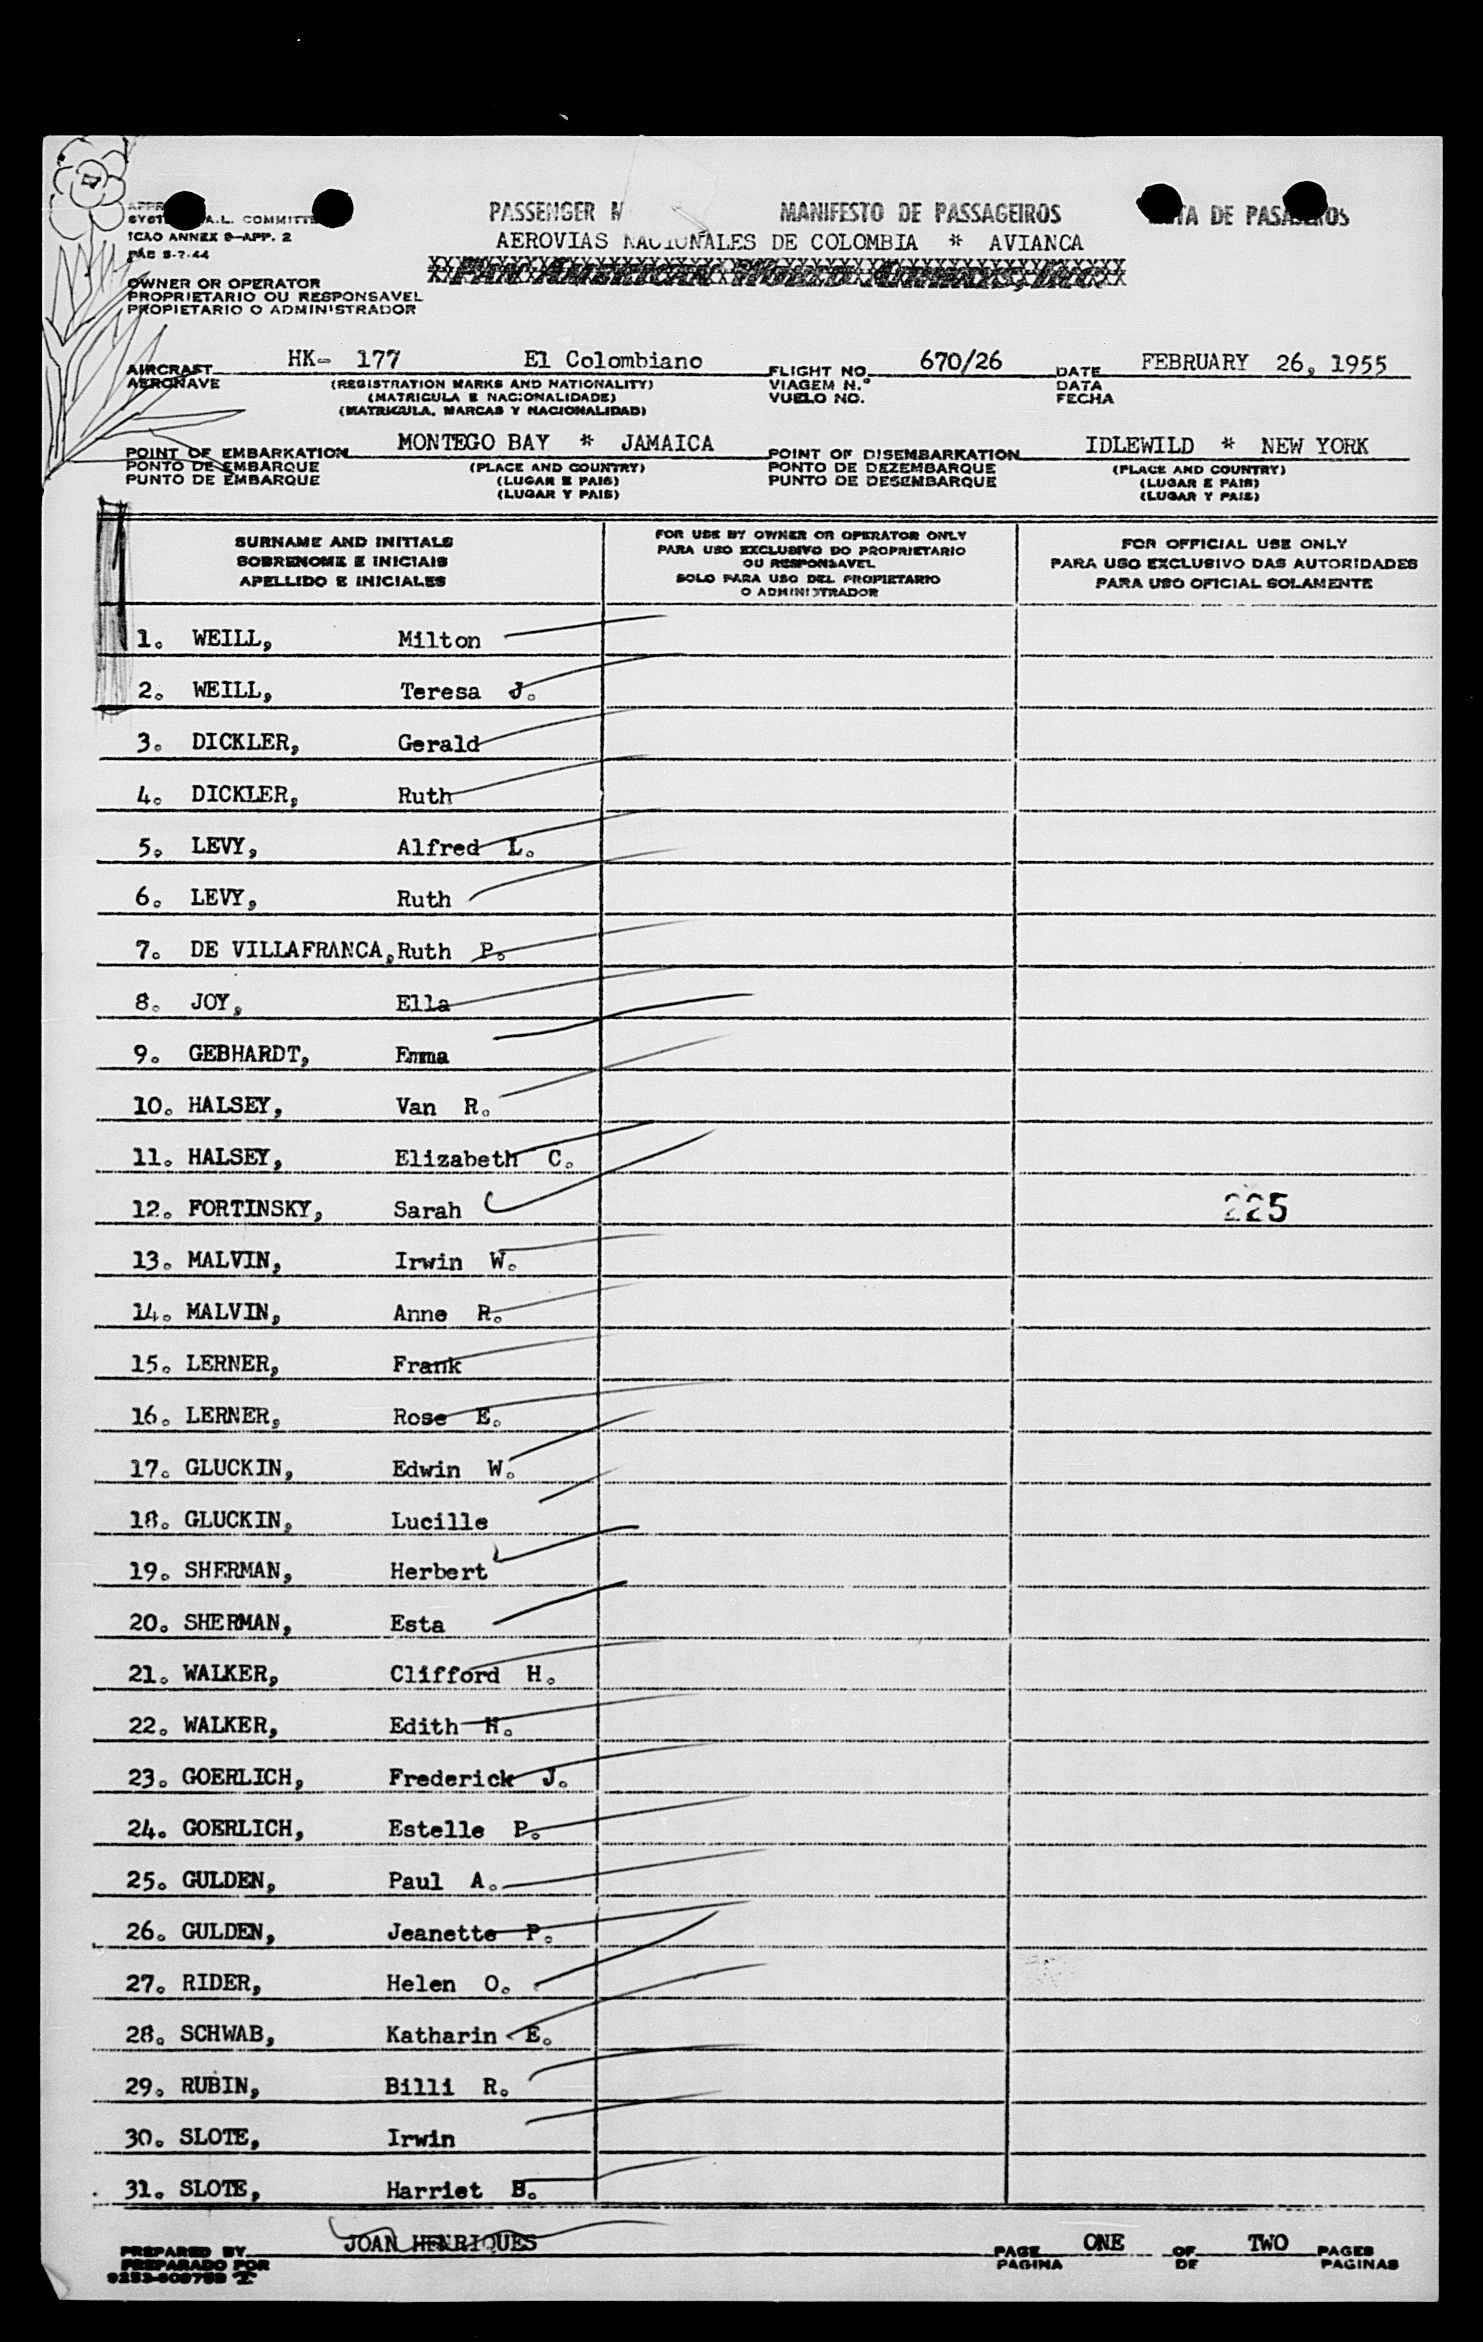 PASSENGER M MANIFESTO DE PASSAGEIROS TA DE PASA
A.L. COMMITTE
ICAO ANNEX 9-APP. 2
AEROVIAS NACIONALES DE COLOMBIA * AVIANCA
OWNER OR OPERATOR
PROPRIETARIO OU RESPONSAVEL
PROPIETARIO O ADMINISTRADOR
AIRCRAFT HK- 177 El Colombiano FLIGHT NO. 670/26 DATE FEBRUARY 26, 1955
AERONAVE (REGISTRATION MARKS AND NATIONALITY) VIAGEM N.° DATA
(MATRICULA E NACIONALIDADE) VUELO NO. FECHA
(MATRICULA, MARCAS Y NACIONALIDAD)
POINT OF EMBARKATION MONTEGO BAY * JAMAICA POINT OF DISEMBARKATION IDLEWILD * NEW YORK
PONTO DE EMBARQUE (PLACE AND COUNTRY) PONTO DE DEZEMBARQUE (PLACE AND COUNTRY)
PUNTO DE EMBARQUE (LUGAR E PAIS) PUNTO DE DESEMBARQUE (LUGAR E PAIS)
(LUGAR Y PAIS) (LUGAR Y PAIS)
SURNAME AND INITIALS
SOBRENOME E INICIAIS
APELLIDO E INICIALES
FOR USE BY OWNER OR OPERATOR ONLY
PARA USO EXCLUSIVO DO PROPRIETARIO
OU RESPONSAVEL
SOLO PARA USO DEL PROPIETARIO
O ADMINISTRADOR
FOR OFFICIAL USE ONLY
PARA USO EXCLUSIVO DAS AUTORIDADES
PARA USO OFICIAL SOLAMENTE
1. WEILL, Milton
2. WEILL, Teresa J.
3. DICKLER, Gerald
4. DICKLER, Ruth
5. LEVY, Alfred L.
6. LEVY, Ruth
7. DE VILLAFRANCA, Ruth P.
8. JOY, Ella
9. GEBHARDT, Emma
10. HALSEY, Van R.
11. HALSEY, Elizabeth C.
12. FORTINSKY, Sarah 225
13. MALVIN, Irwin W.
14. MALVIN, Anne R.
15. LERNER, Frank
16. LERNER, Rose E.
17. GLUCKIN, Edwin W.
18. GLUCKIN, Lucille
19. SHERMAN, Herbert
20. SHERMAN, Esta
21. WALKER, Clifford H.
22. WALKER, Edith H.
23. GOERLICH, Frederick J.
24. GOERLICH, Estelle P.
25. GULDEN, Paul A.
26. GULDEN, Jeanette P.
27. RIDER, Helen O.
28. SCHWAB, Katharin E.
29. RUBIN, Billi R.
30. SLOTE, Irwin
31. SLOTE, Harriet B.
PREPARED BY JOAN HENRIQUES PAGE ONE OF TWO PAGES
PREPARADO POR PAGINA DE PAGINAS